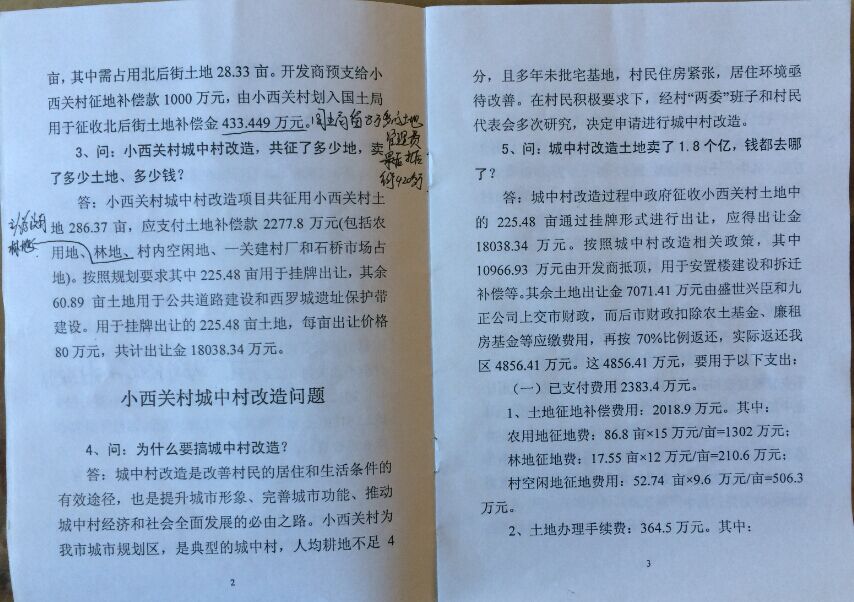 亩，其中需占用北后街土地 28.33 亩。开发商预支给小
西关村征地补偿款 1000 万元，由小西关村划入国土局
用于征收北后街土地补偿金 433.449 万元。
3、问：小西关村城中村改造，共征了多少地，卖
了多少土地、多少钱？
答：小西关村城中村改造项目共征用小西关村土
地 286.37 亩，应支付土地补偿款 2277.8 万元(包括农
用地、林地、村内空闲地、一关建村厂和石桥市场占
地)。按照规划要求其中 225.48 亩用于挂牌出让，其余
60.89 亩土地用于公共道路建设和西罗城遗址保护带
建设。用于挂牌出让的 225.48 亩土地，每亩出让价格
80 万元，共计出让金 18038.34 万元。
小西关村城中村改造问题
4、问：为什么要搞城中村改造？
答：城中村改造是改善村民的居住和生活条件的
有效途径，也是提升城市形象、完善城市功能、推动
城中村经济和社会全面发展的必由之路。小西关村为
我市城市规划区，是典型的城中村，人均耕地不足 4
2
分，且多年未批宅基地，村民住房紧张，居住环境亟
待改善。在村民积极要求下，经村“两委”班子和村民
代表会多次研究，决定申请进行城中村改造。
5、问：城中村改造土地卖了 1.8 个亿，钱都去哪
了？
答：城中村改造过程中政府征收小西关村土地中
的 225.48 亩通过挂牌形式进行出让，应得出让金
18038.34 万元。按照城中村改造相关政策，其中
10966.93 万元由开发商抵顶，用于安置楼建设和拆迁
补偿等。其余土地出让金 7071.41 万元由盛世兴臣和九
正公司上交市财政，而后市财政扣除农土基金、廉租
房基金等应缴费用，再按 70%比例返还，实际返还我
区 4856.41 万元。这 4856.41 万元，要用于以下支出：
（一）已支付费用 2383.4 万元。
1、土地征地补偿费用：2018.9 万元。其中：
农用地征地费：86.8 亩×15 万元/亩=1302 万元；
林地征地费：17.55 亩×12 万元/亩=210.6 万元；
村空闲地征地费用：52.74 亩×9.6 万元/亩=506.3
万元。
2、土地办理手续费：364.5 万元。其中：
3